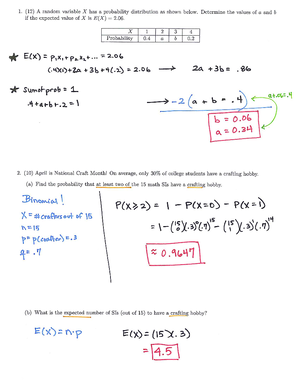 1. (12) A random variable X has a probability distribution as shown below. Determine the values of a and b
if the expected value of X is E(X) = 2.06.
X 1 2 3 4
Probability 0.4 a b 0.2
★ E(X) = p₁x₁ + p₂x₂ + ... = 2.06
(.4)(1) + 2a + 3b + 4(.2) = 2.06 → 2a + 3b = .86
★ Sum of prob = 1
.4 + a + b + .2 = 1 → -2(a + b = .4)
b = 0.06
a = 0.34
2. (10) April is National Craft Month! On average, only 30% of college students have a crafting hobby.
(a) Find the probability that at least two of the 15 math SIs have a crafting hobby.
Binomial!
X = # crafters out of 15
n = 15
p = p(crafter) = .3
q = .7
P(X ≥ 2) = 1 - P(X=0) - P(X=1)
= 1 - (15 0)(.3)⁰(.7)¹⁵ - (15 1)(.3)¹(.7)¹⁴
≈ 0.9647
(b) What is the expected number of SIs (out of 15) to have a crafting hobby?
E(X) = n·p E(X) = (15)(.3)
= 4.5